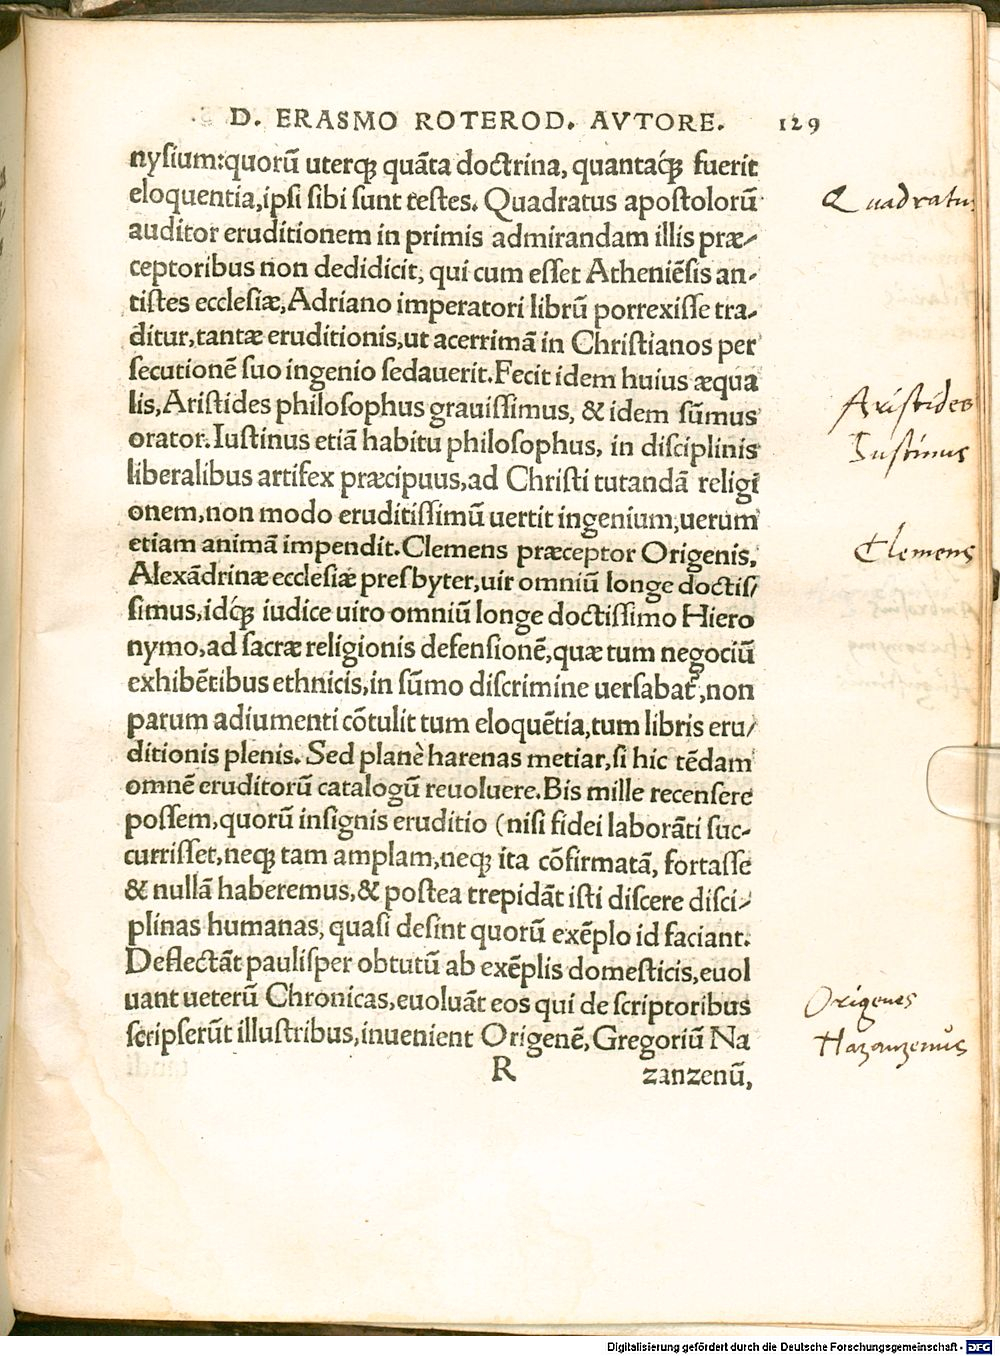 D. ERASMO ROTEROD. AVTORE. 129
nysium:quorũ uterq; quãta doctrina, quantaq́; fuerit
eloquentia,ipsi sibi sunt testes. Quadratus apostolorũ
Quadratu
auditor eruditionem in primis admirandam illis præ-
ceptoribus non dedidicit, qui cum esset Atheniẽsis an-
tistes ecclesiæ,Adriano imperatori librũ porrexisse tra-
ditur,tantæ eruditionis,ut acerrimã in Christianos per
secutionẽ suo ingenio sedauerit.Fecit idem huius æqua
lis,Aristides philosophus grauissimus, & idem sũmus
Aristides
orator.Iustinus etiã habitu philosophus, in disciplinis
Iustinus
liberalibus artifex præcipuus,ad Christi tutandã religi
onem,non modo eruditissimũ uertit ingenium,uerum
etiam animã impendit.Clemens præceptor Origenis,
Clemens
Alexãdrinæ ecclesiæ presbyter,uir omniũ longe doctis/
simus,idq́; iudice uiro omniũ longe doctissimo Hiero
nymo,ad sacræ religionis defensionẽ,quæ tum negociũ
exhibẽtibus ethnicis,in sũmo discrimine uersabat᷑,non
parum adiumenti cõtulit tum eloquẽtia,tum libris eru/
ditionis plenis. Sed planè harenas metiar,si hic tẽdam
omnẽ eruditorũ catalogũ reuoluere.Bis mille recensere
possem,quorũ insignis eruditio (nisi fidei laborãti suc-
currisset,neq; tam amplam,neq; ita cõfirmatã, fortasse
& nullã haberemus,& postea trepidãt isti discere disci-
plinas humanas, quasi desint quorũ exẽplo id faciant.
Deflectãt paulisper obtutũ ab exẽplis domesticis,euol
uant ueterũ Chronicas,euoluãt eos qui de scriptoribus
Origenes
scripserũt illustribus,inuenient Origenẽ, Gregoriũ Na
Nazanzenus
R zanzenũ,
Digitalisierung gefördert durch die Deutsche Forschungsgemeinschaft - DFG